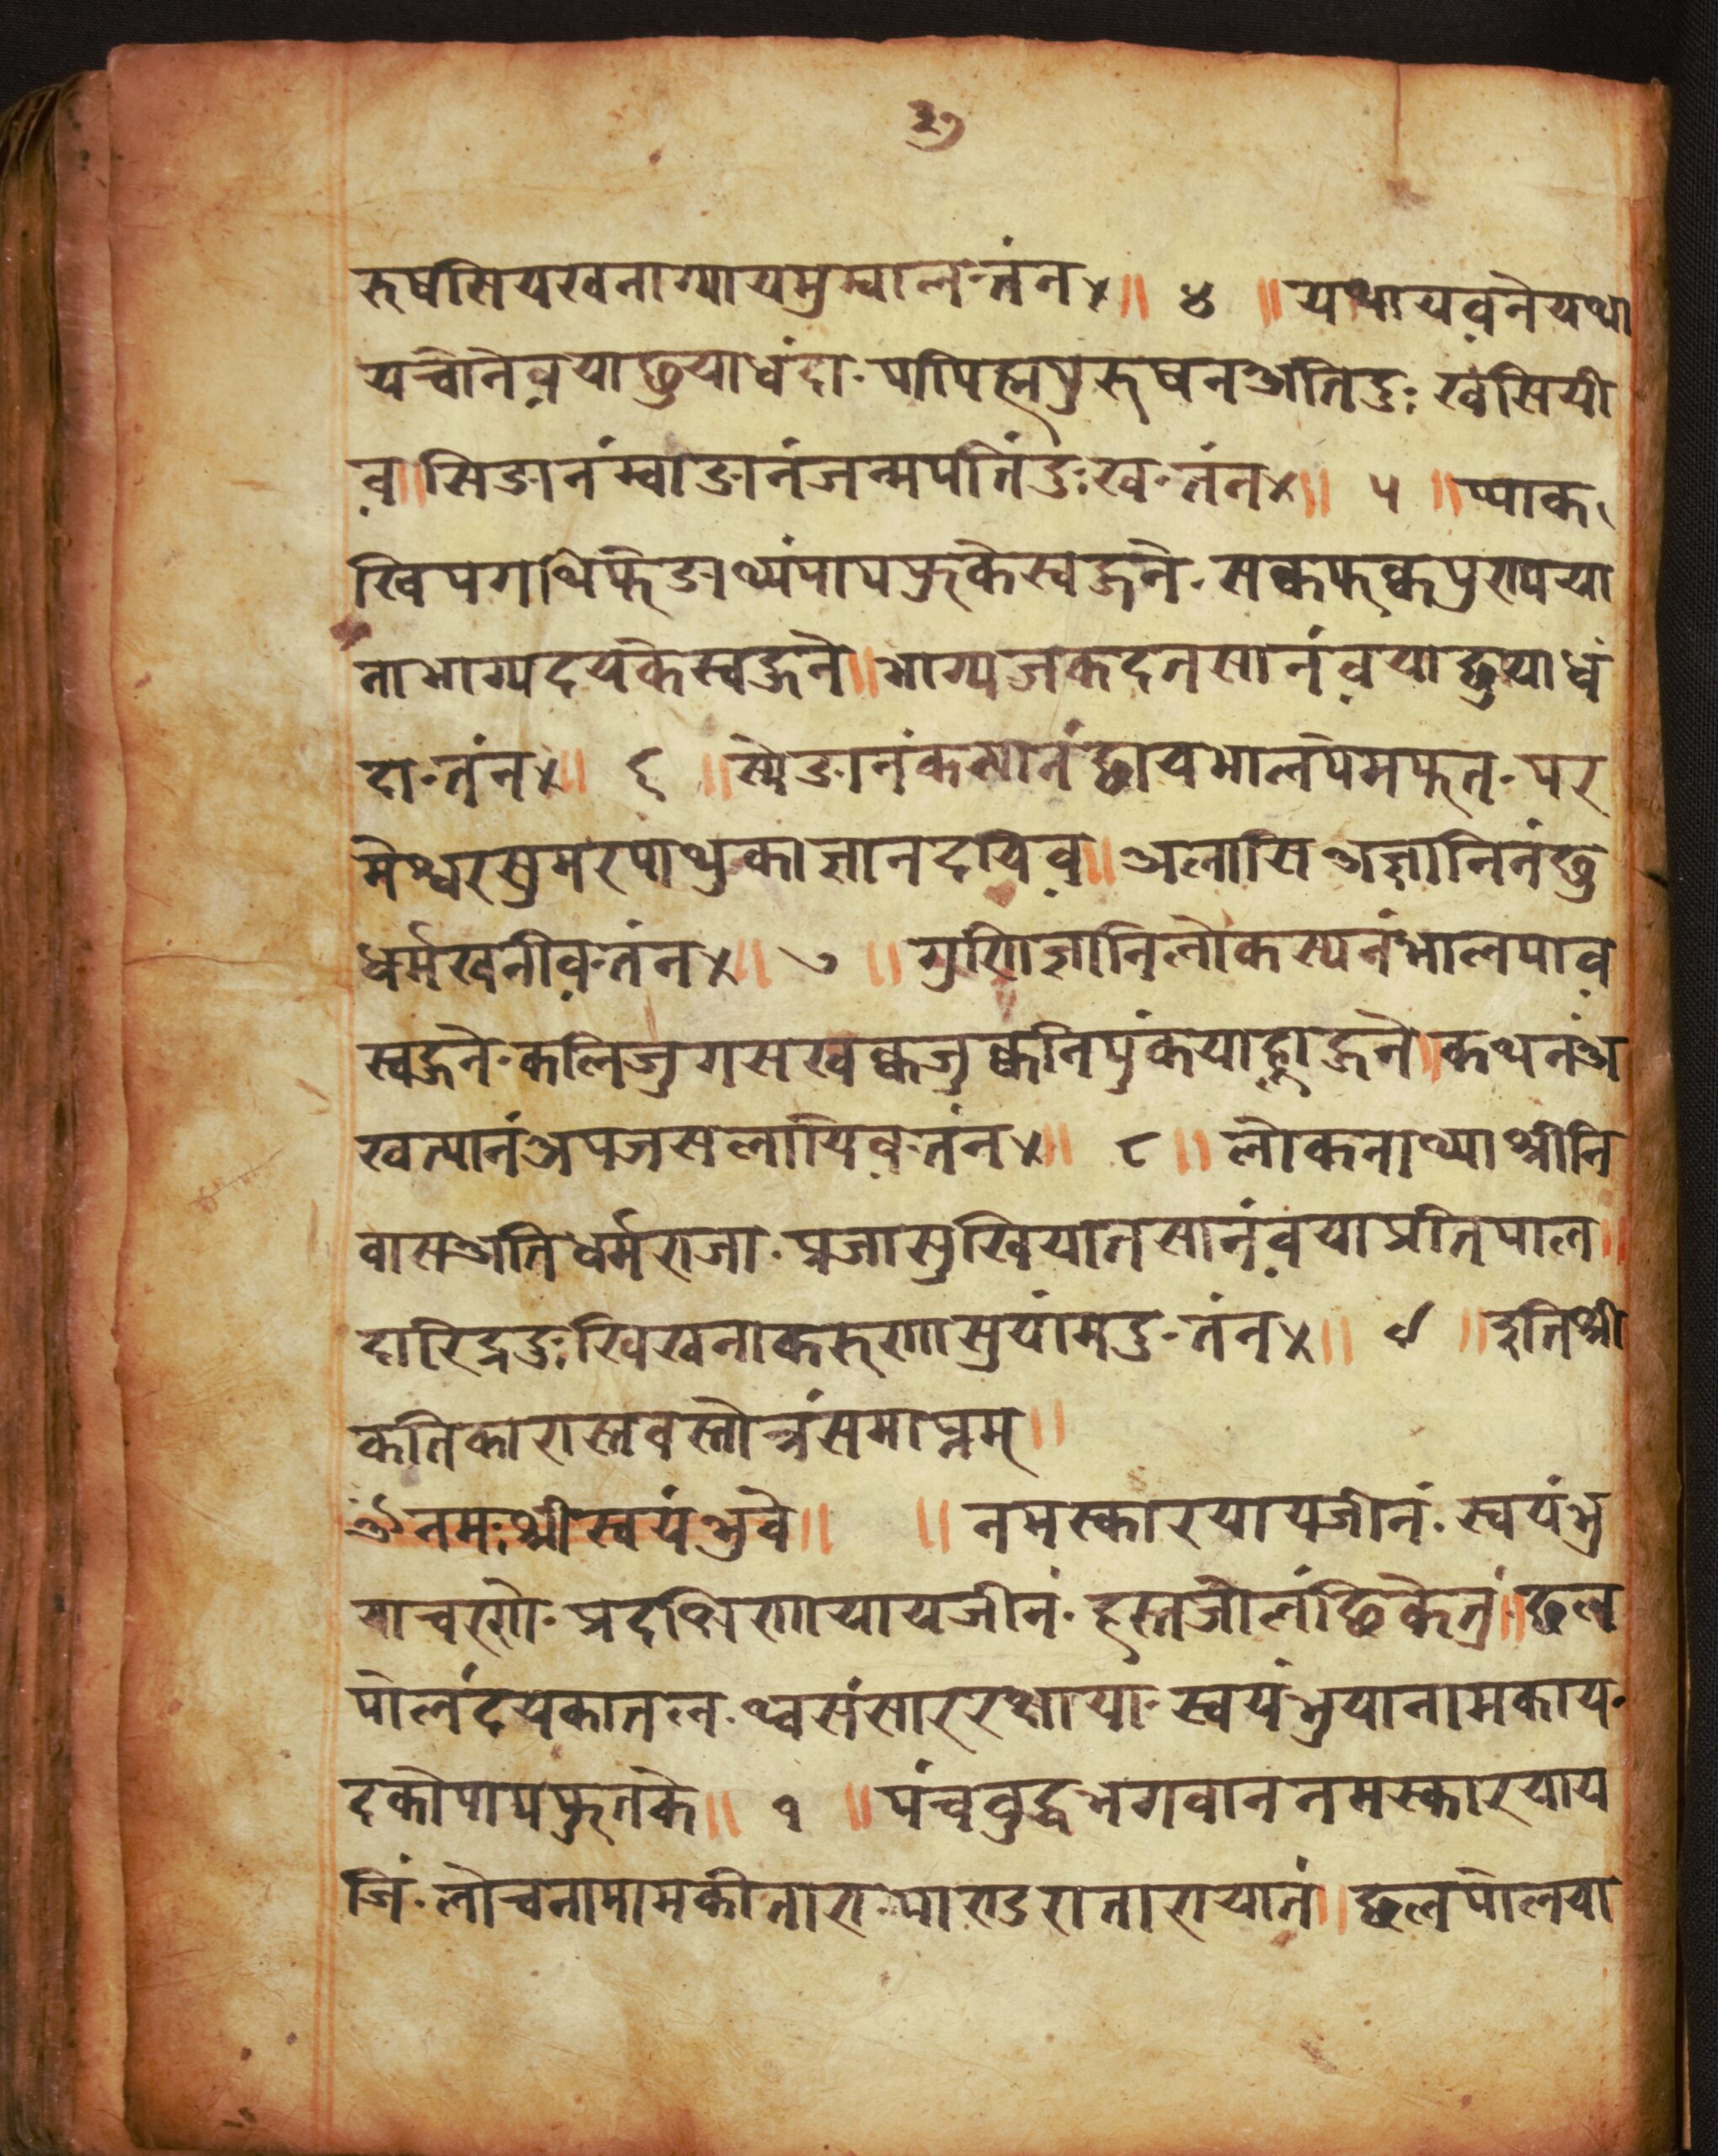 ३७
रुषसियखनाग्यायमुम्वाल-तंन४॥ ४ ॥यथायव़नेयथा
यच्वोनेव़याछुयाधंदा-पापिह्मपुरुषनअतिदुःखंसियी
व़॥सिङानंम्वाङानंजन्मपतिंदुःख-तंन४॥ ५ ॥प्याक
खिपगथिफैङाथ्यंपापफुकेस्वह्नने-सकफुकपुरापया
नाभाग्यदयकेस्वह्नने॥भाग्यजकदतसानंव़याछुयाधं
दा-तंन४॥ ६ ॥स्येङानंकन्यानंछायभालपेमफुत-पर
मेश्वरसुमरपाथुकाज्ञानदयिव़॥अलासिअज्ञानिनंछु
धर्मखनीव़-तंन४॥ ७ ॥गुणिज्ञानिलोकस्यनंभालपाव़
स्वह्नने-कलिजुगसखकजुकनिपुंकयाह्नने॥कथनंअ
खत्यानंअपजसलायिव़-तंन४॥ ८ ॥लोकनाथ्याश्रीनि
वासअतिधर्मराजा-प्रजासुखियातसानंव़याप्रतिपाल॥
दारिद्रदुःखिखनाकरुणासुयांमदु-तंन४॥ ९ ॥इतिश्री
कतिकारास्तवस्तोत्रंसमाप्तम्॥
ॐनमःश्रीस्वयंभुवे॥ ॥नमस्कारयायजीनं-स्वयंभु
याचरणे-प्रदक्षिणायायजीनं-हस्तजोलंछिकेतुं॥छल
पोलंदयेकातल-थ्वसंसाररक्षाया-स्वयंभुयानामकाय-
दकोपापफुतके॥ १ ॥पंचबुद्धभगवाननमस्कारयाय
जिं-लोचनामामकीतारा-पाण्डरातारायातं॥छलपोलया